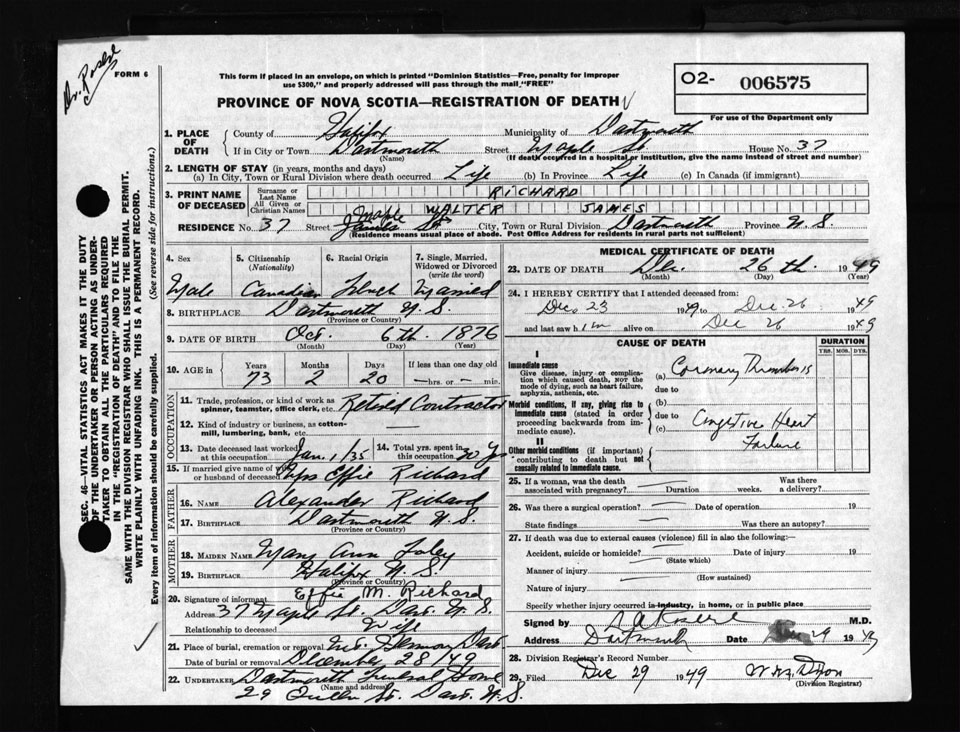 Dr. Rosere
FORM 6
This form if placed in an envelope, on which is printed "Dominion Statistics—Free, penalty for improper
use $300," and properly addressed will pass through the mail "FREE"
PROVINCE OF NOVA SCOTIA—REGISTRATION OF DEATH
O2- 006575
For use of the Department only
SEC. 46—VITAL STATISTICS ACT MAKES IT THE DUTY
OF THE UNDERTAKER OR PERSON ACTING AS UNDER-
TAKER TO OBTAIN ALL THE PARTICULARS REQUIRED
IN THE "REGISTRATION OF DEATH" AND TO FILE THE
SAME WITH THE DIVISION REGISTRAR WHO SHALL ISSUE THE BURIAL PERMIT.
WRITE PLAINLY WITH UNFADING INK. THIS IS A PERMANENT RECORD.
Every item of Information should be carefully supplied. (See reverse side for instructions.)
1. PLACE OF DEATH County of Halifax Municipality of Dartmouth
If in City or Town Dartmouth Street Maple St House No. 37
(Name) (If death occurred in a hospital or institution, give the name instead of street and number)
2. LENGTH OF STAY (in years, months and days)
(a) In City, Town or Rural Division where death occurred Life (b) In Province Life (c) In Canada (if immigrant)
3. PRINT NAME OF DECEASED Surname or Last Name RICHARD
All Given or Christian Names WALTER JAMES
RESIDENCE No. 37 Street Maple James St City, Town or Rural Division Dartmouth Province N.S.
(Residence means usual place of abode. Post Office Address for residents in rural parts not sufficient)
4. Sex 5. Citizenship (Nationality) 6. Racial Origin 7. Single, Married, Widowed or Divorced (write the word)
Male Canadian French Married
8. BIRTHPLACE Dartmouth N.S.
(Province or Country)
9. DATE OF BIRTH Oct. 6th. 1876
(Month) (Day) (Year)
10. AGE in Years Months Days If less than one day old
73 2 20 — hrs. or — min.
OCCUPATION
11. Trade, profession or kind of work as spinner, teamster, office clerk, etc. Retired Contractor
12. Kind of industry or business, as cotton-mill, lumbering, bank, etc. —
13. Date deceased last worked at this occupation Jan. 1/35 14. Total yrs. spent in this occupation 20 yrs
15. If married give name of wife or husband of deceased Mrs Effie Richard
FATHER
16. NAME Alexander Richard
17. BIRTHPLACE Dartmouth N.S.
(Province or Country)
MOTHER
18. MAIDEN NAME Mary Ann Foley
19. BIRTHPLACE Halifax N.S.
(Province or Country)
20. Signature of informant Effie M. Richard
Address 37 Maple St. Dart. N.S.
Relationship to deceased Wife
21. Place of burial, cremation or removal Mt. Hermon Dart
Date of burial or removal December 28/49
22. UNDERTAKER Dartmouth Funeral Home
(Name and address)
29 St. Dart. N.S.
MEDICAL CERTIFICATE OF DEATH
23. DATE OF DEATH Dec. 26th. 1949
(Month) (Day)
24. I HEREBY CERTIFY that I attended deceased from:
Dec 23 1949 to Dec 26 1949
and last saw him alive on Dec 26 1949
CAUSE OF DEATH DURATION
YRS. MOS. DYS.
I
Immediate cause
Give disease, injury or complication which caused death, NOT the mode of dying, such as heart failure, asphyxia, asthenia, etc.
(a) Coronary Thrombosis
due to
Morbid conditions, if any, giving rise to immediate cause (stated in order proceeding backwards from immediate cause).
(b)
due to
(c) Congestive Heart Failure
II
Other morbid conditions (if important) contributing to death but not causally related to immediate cause.
25. If a woman, was the death associated with pregnancy? — Duration weeks. Was there a delivery?
26. Was there a surgical operation? — Date of operation 19
State findings — Was there an autopsy?
27. If death was due to external causes (violence) fill in also the following:—
Accident, suicide or homicide? — Date of injury 19
(State which)
Manner of injury
(How sustained)
Nature of injury
Specify whether injury occurred in industry, in home, or in public place
Signed by M.D.
Address Dartmouth Date Dec 29 1949
28. Division Registrar's Record Number
29. Filed Dec 29 1949
(Division Registrar)